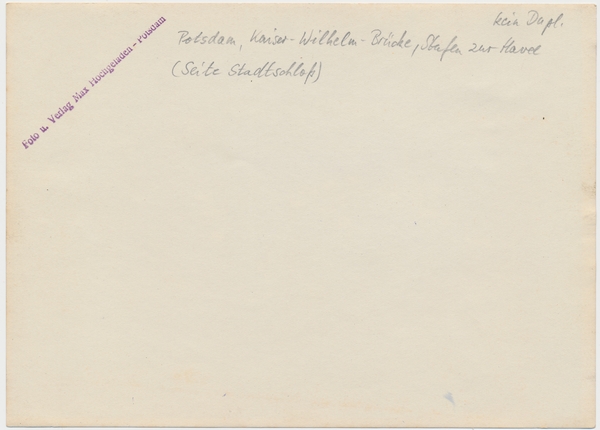 kein Dupl.
Potsdam, Kaiser-Wilhelm-Brücke, Stufen zur Havel
(Seite Stadtschloß)
Foto u. Verlag Max Hochgeladen - Potsdam